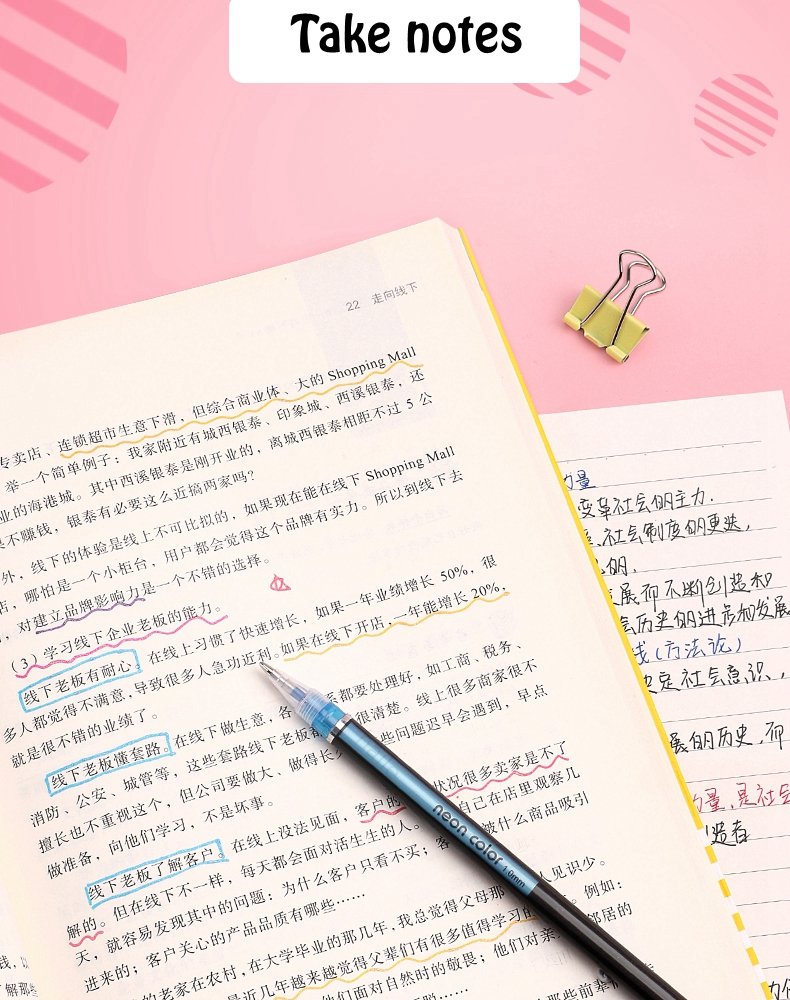 Take notes
22 走向线下
专卖店、连锁超市生意下滑，但综合商业体、大的 Shopping Mall
举一个简单例子：我家附近有城西银泰、印象城、西溪银泰，还
业的海港城。其中西溪银泰是刚开业的，离城西银泰相距不过 5 公
不赚钱，银泰有必要这么近搞两家吗？
外，线下的体验是线上不可比拟的，如果现在能在线下 Shopping Mall
店，哪怕是一个小柜台，用户都会觉得这个品牌有实力。所以到线下去
，对建立品牌影响力是一个不错的选择。
（3）学习线下企业老板的能力。
线下老板有耐心。在线上习惯了快速增长，如果一年业绩增长 50%，很
多人都觉得不满意，导致很多人急功近利。如果在线下开店，一年能增长 20%，
就是很不错的业绩了。
线下老板懂套路。在线下做生意，各 系都要处理好，如工商、税务、
消防、公安、城管等，这些套路线下老板都 很清楚。线上很多商家很不
擅长也不重视这个，但公司要做大、做得长 些问题迟早会遇到，早点
做准备，向他们学习，不是坏事。
线下老板了解客户。在线上没法见面，客户的 状况很多卖家是不了
解的。但在线下不一样，每天都会面对活生生的人。 自己在店里观察几
天，就容易发现其中的问题：为什么客户只看不买；客 被什么商品吸引
进来的；客户关心的产品品质有哪些……
的老家在农村，在大学毕业的那几年，我总觉得父母那 人见识少。
是近几年越来越觉得父辈们有很多值得学习的 。例如：
他们面对自然时的敬畏；他们对亲 邻居的
那些前辈
neon color 1.0mm
力量
变革社会的主力.
社会制度的更迭，
的.
展而不断创造和
会历史的进步和发展
线（方法论）
决定社会意识，
展的历史，而
力量，是社会
造者